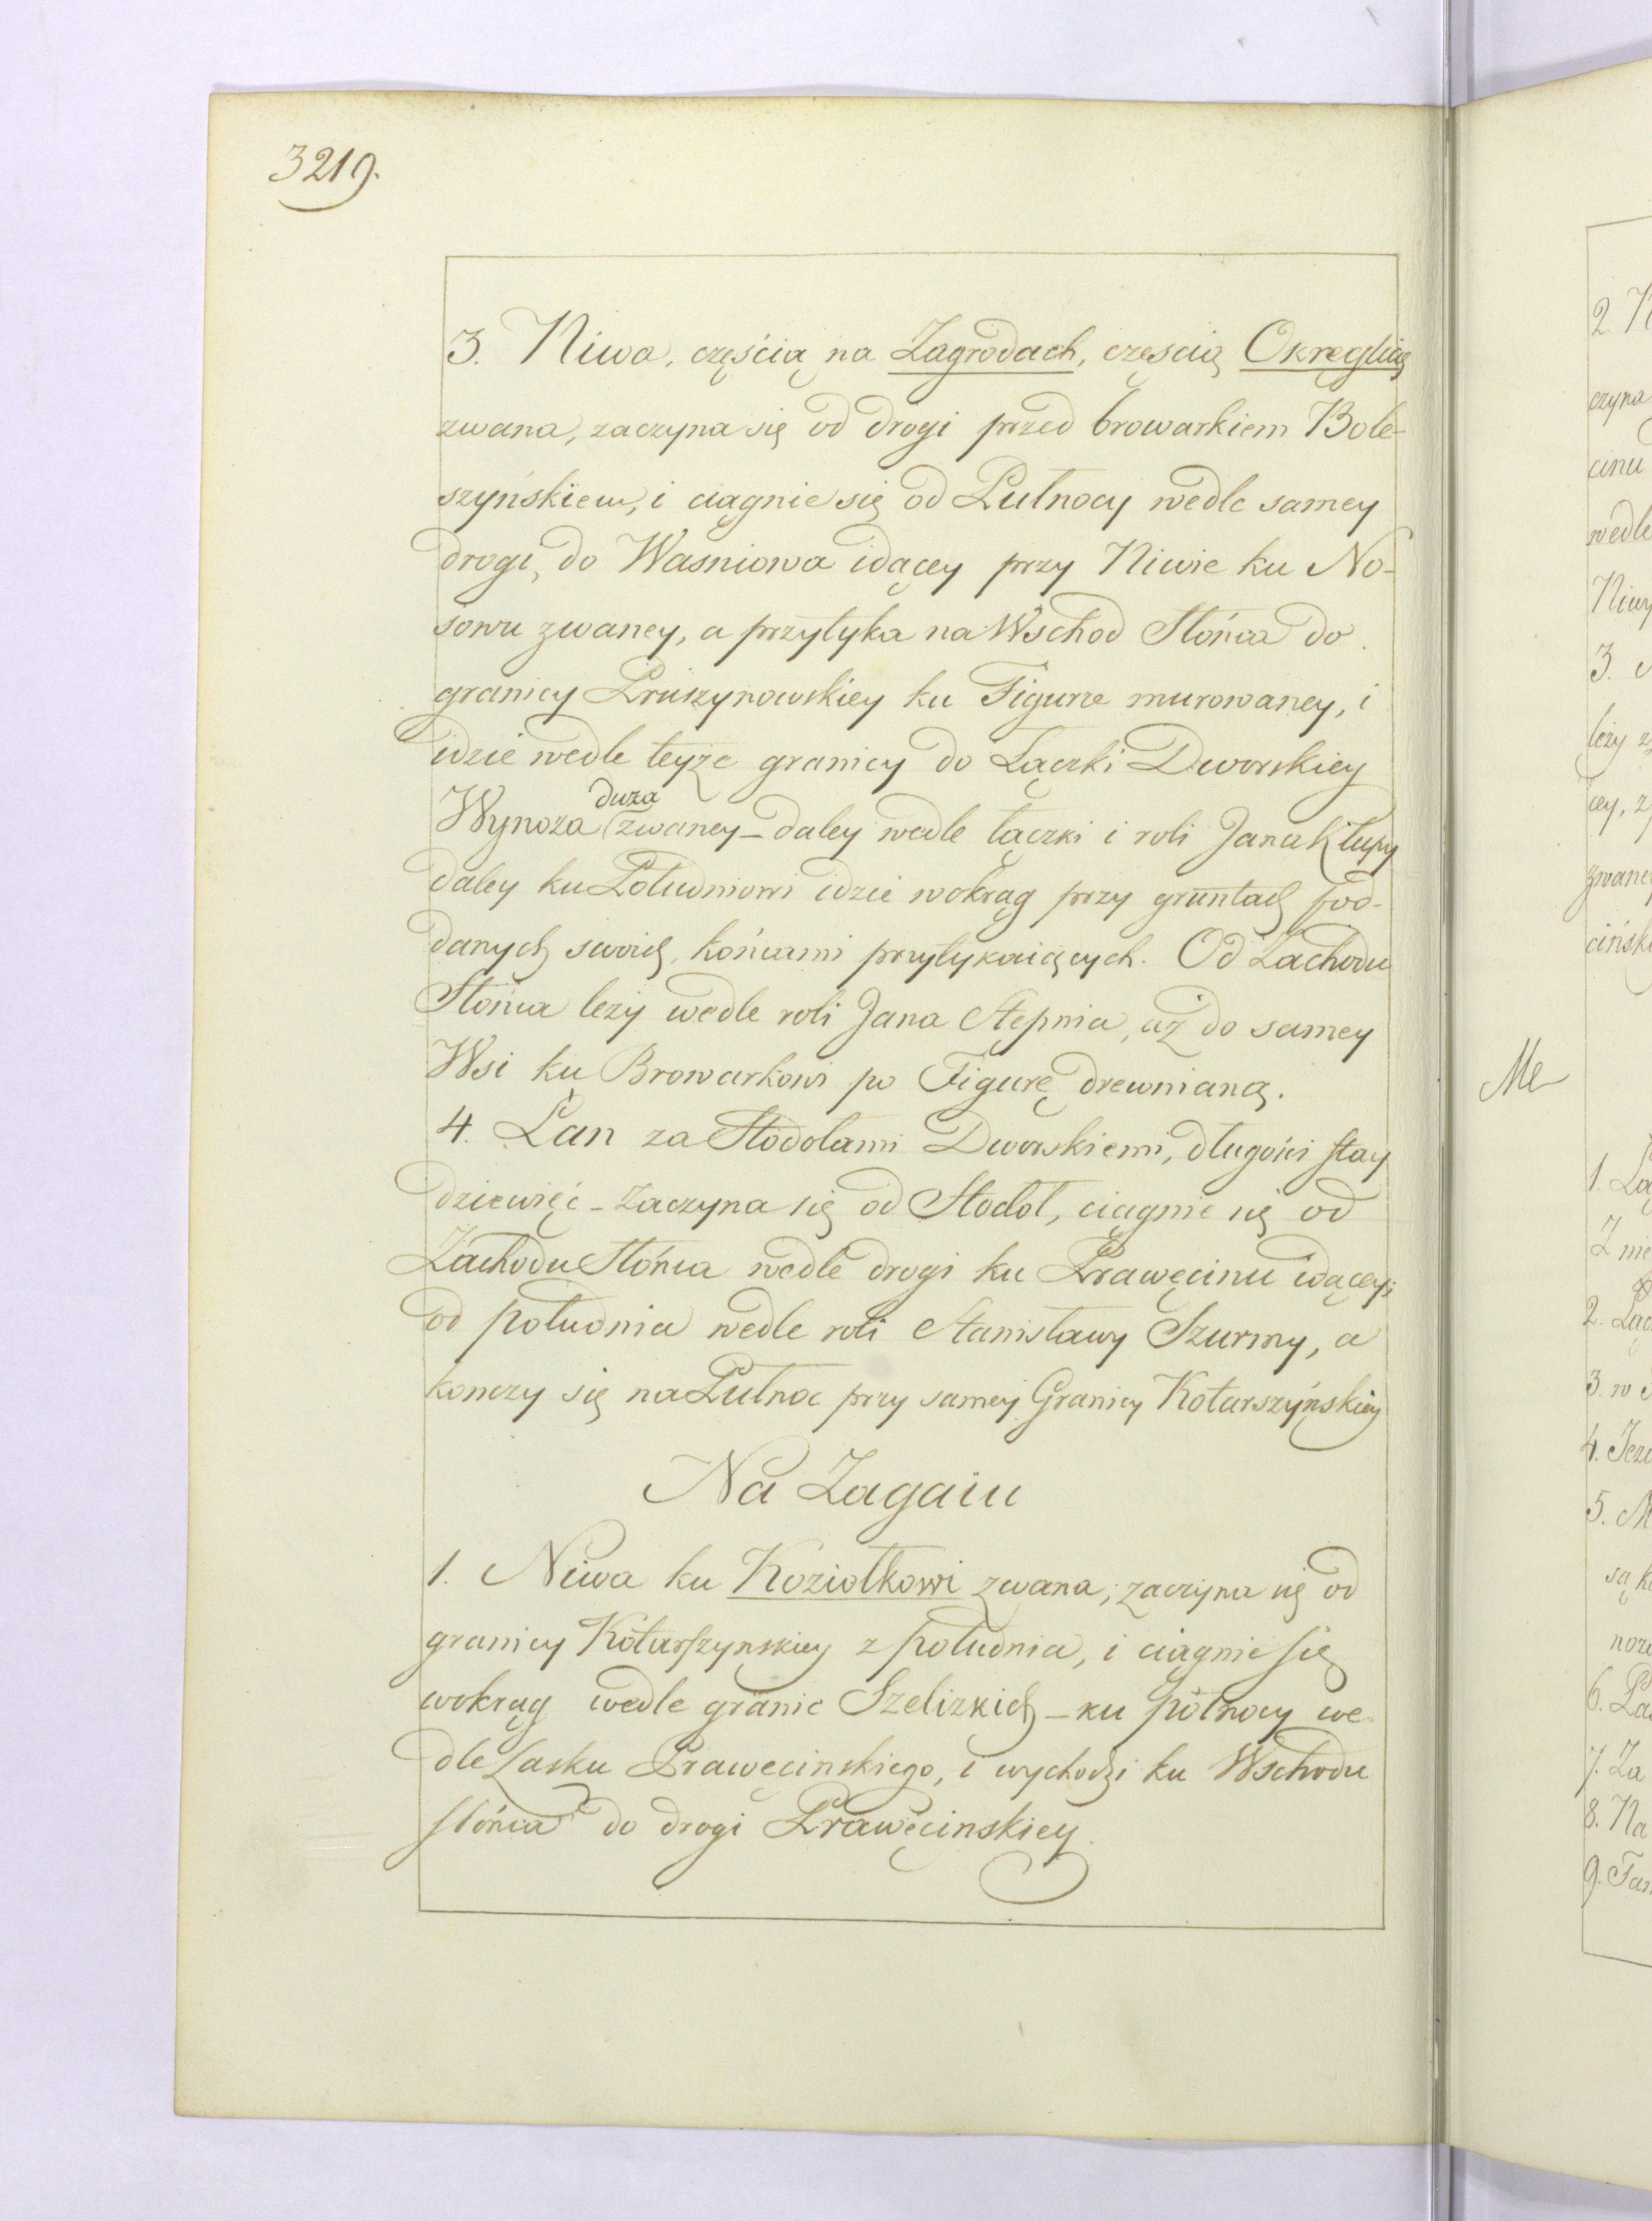 3219.
3. Niwa, częścią na Zagrodach, częscią Okręglicą
zwana, zaczyna się od drogi przed browarkiem Bole-
szyńskiem, i ciągnie się od Pułnocy wedle samey
drogi, do Wasniowa idącey przy Niwie ku No-
sowu zwaney, a przytyka na Wschod Słońca do
granicy Pruszynowskiey ku Figurze murowaney, i
idzie wedle teyże granicy do Łączki Dworskiey
duża
Wynoza zwaney – daley wedle łączki i roli Jana Kłupy
daley ku Południowi idzie wokrąg przy gruntach pod-
danych swoich końcami przytykaiących. Od Zachodu
Słońca leży wedle roli Jana Stępnia, aż do samey
Wsi ku Browarkowi po Figurę drewnianą.
4. Łan za Stodołami Dworskiemi, długości stay
dziewięć – zaczyna się od Stodoł, ciągnie się od
Zachodu Słońca wedle drogi ku Prawęcinu idącey;
od południa wedle roli Stanisławy Szurmy, a
konczy się na Pułnoc przy samey Granicy Kotarszyńskiey
Na Zagaiu
1. Niwa ku Koziołkowi zwana; zaczyna się od
granicy Kotarszynskiey z południa, i ciągnie się
wokrąg wedle granic Szelizkich – ku północy we-
dle Lasku Prawęcinskiego, i wychodzi ku Wschodu
słońca do drogi Prawęcinskiey.